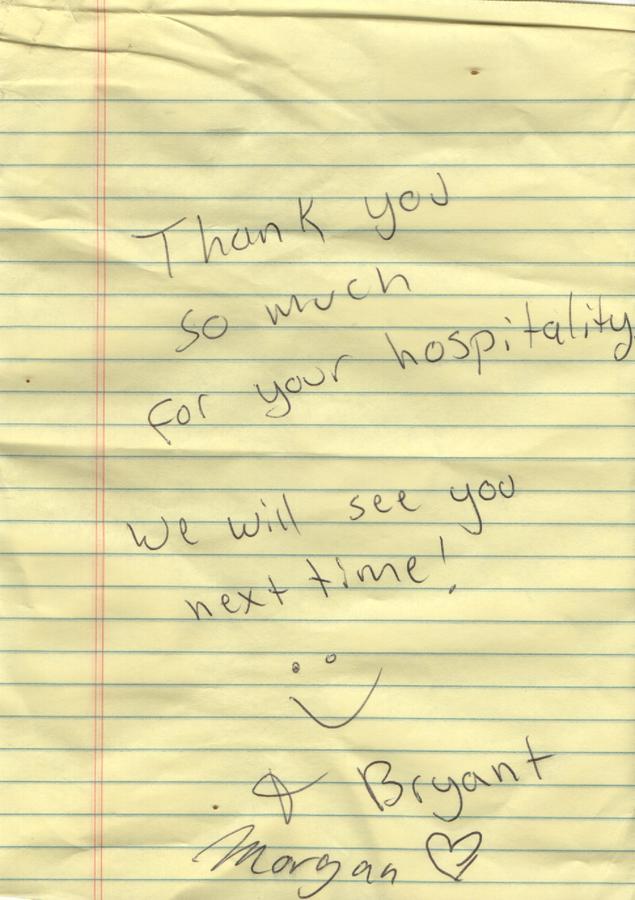 Thank you
so much
for your hospitality
We will see you
next time!
& Bryant
Morgan